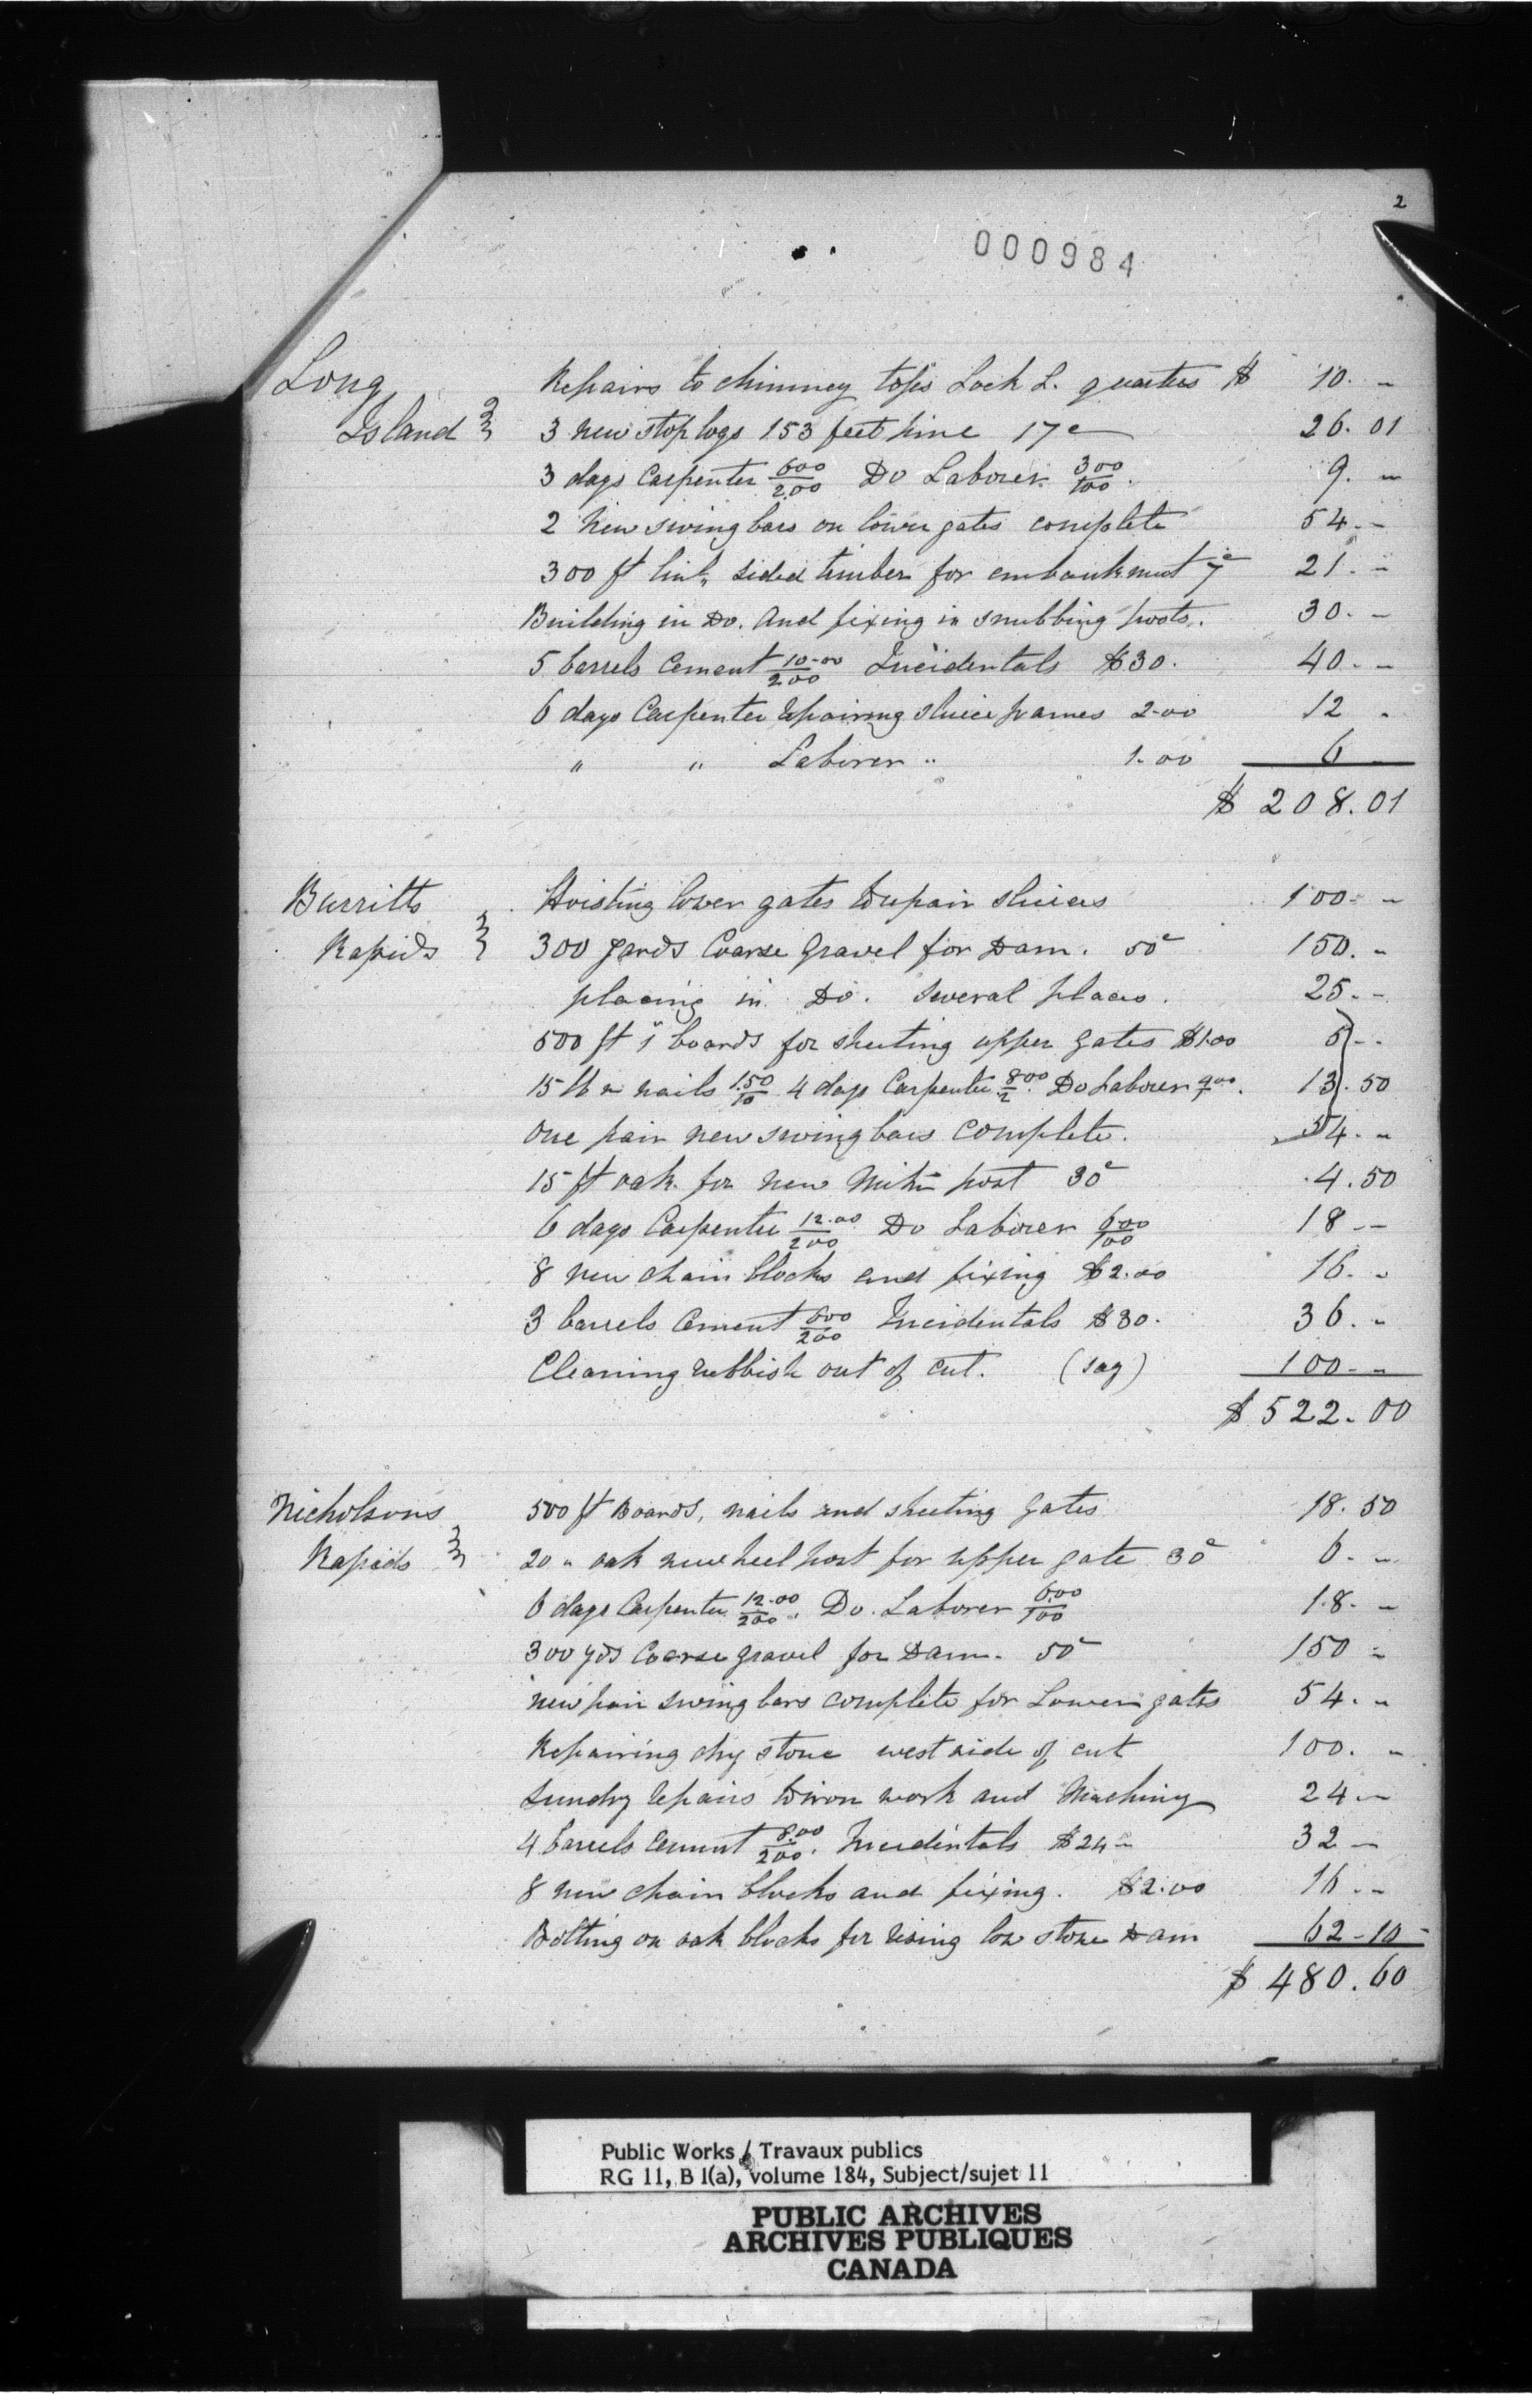 2
000984
Long Repairs to chimney tops Lock L. quarters $ 10. -
Island 3 new stop logs 153 feet pine 17c 26. 01
3 days Carpenter 600/2.00 Do Laborer 300/100. 9. -
2 New swing bars on lower gates complete 54. -
300 ft sided timber for embankment 7c 21. -
Building in Do. and fixing in snubbing posts. 30. -
5 barrels Cement 10.00/200 Incidentals $30. 40. -
6 days Carpenter repairing sluice frames 2.00 12 -
" " Laborer " 1.00 6 -
$ 208.01
Burritts Hoisting lower gates to repair sluices 100. -
Rapids 300 yards Coarse Gravel for Dam. 50c 150. -
placing in Do. several places. 25. -
500 ft 1" boards for sheeting upper gates $1.00 5. -
15 lbs nails 1.50/10 4 days Carpenter 8.00/2 Do Laborer 4.00/1. 13. 50
One pair new swing bars complete. 54. -
15 ft oak for new mitre post 30c 4.50
6 days Carpenter 12.00/200 Do Laborer 6.00/100 18 -
8 new chain blocks and fixing $2.00 16. -
3 barrels Cement 600/200 Incidentals $30. 36. -
Cleaning rubbish out of cut. (say) 100. -
$ 522.00
Nicholsons 500 ft Boards, nails and sheeting gates 18. 50
Rapids 20 " oak new heel post for upper gate 30c 6. -
6 days Carpenter 12.00/200. Do. Laborer 6.00/100 18. -
300 yds Coarse gravel for Dam. 50c 150 -
new pair swing bars complete for Lower gates 54. -
Repairing dry stone west side of cut 100. -
Sundry repairs to iron work and Machinery 24 -
4 barrels cement 8.00/200. Incidentals $24 - 32 -
8 new chain blocks and fixing. $2.00 16. -
Bolting on oak blocks for rising low stone Dam 62 - 10
$ 480.60
Public Works / Travaux publics
RG 11, B 1(a), volume 184, Subject/sujet 11
PUBLIC ARCHIVES
ARCHIVES PUBLIQUES
CANADA